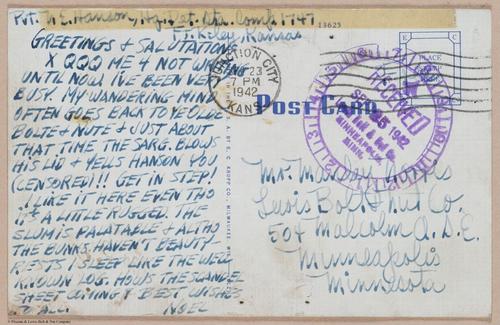 Pvt. N E. Hanson, Hq. Det. Sta. Comp. 1747
Ft. Riley, Kansas
13625
GREETINGS & SALUTATIONS
X QQQ ME 4 NOT WRITING
UNTIL NOW. I'VE BEEN VERY
BUSY. MY WANDERING MIND
OFTEN GOES BACK TO YE OLDE
BOLTE & NUTE & JUST ABOUT
THAT TIME THE SARG. BLOWS
HIS LID & YELLS HANSON YOU
(CENSORED)!! GET IN STEP!
I LIKE IT HERE EVEN THO
IT'S A LITTLE RUGGED. THE
SLUM IS PALATABLE & ALTHO
THE BUNKS HAVEN'T BEAUTY-
RESTS I SLEEP LIKE THE WELL
KNOWN LOG. HOWS THE SCANDEL
SHEET COMING? BEST WISHES
TO ALL. NOEL
JUNCTION CITY
23
7 PM
1942
KANS
Post Card
PLACE
RECEIVED
SEP 25 1942
Bolt & Nut Co.
MINNEAPOLIS
MINN.
Mr. 
Lewis Bolt & Nut Co.
504 Malcolm A.S.E.
Minneapolis
Minnesota